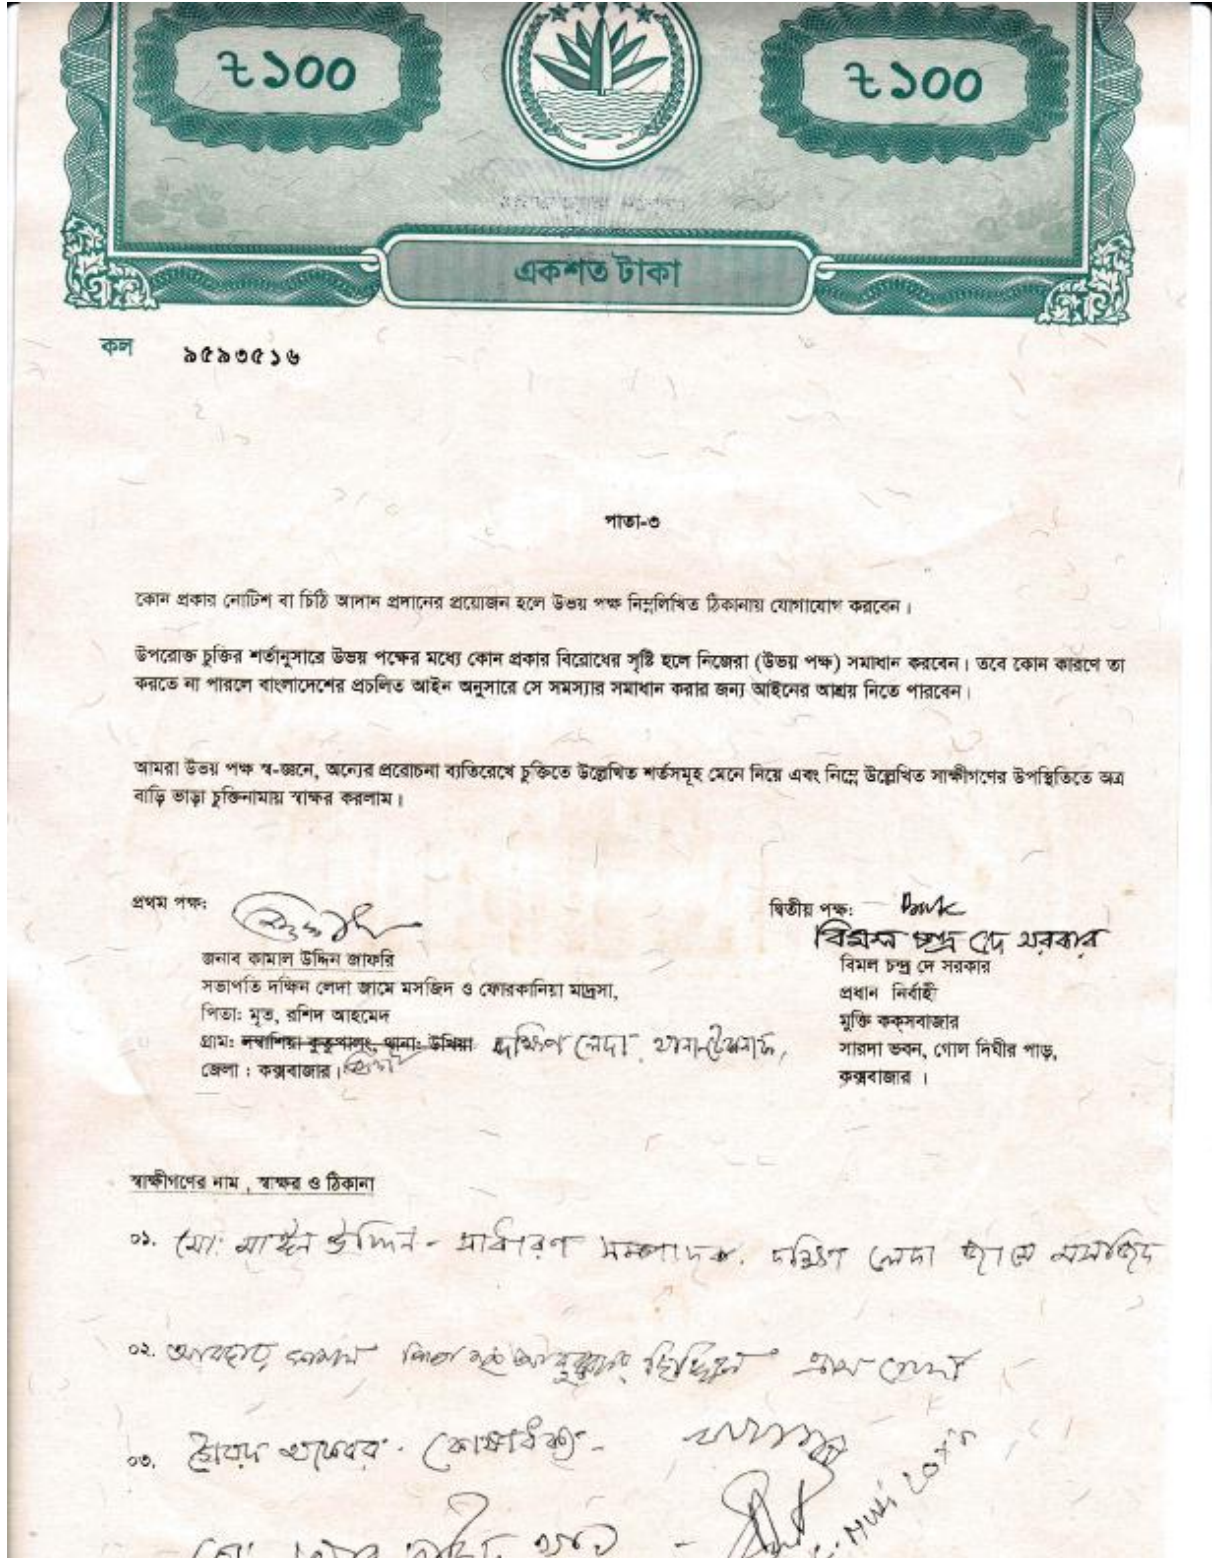 ৳১০০ ৳১০০
একশত টাকা
কল ৯৫৯৩৫১৬
পাতা-৩
কোন প্রকার নোটিশ বা চিঠি আদান প্রদানের প্রয়োজন হলে উভয় পক্ষ নিম্নলিখিত ঠিকানায় যোগাযোগ করবেন।
উপরোক্ত চুক্তির শর্তানুসারে উভয় পক্ষের মধ্যে কোন প্রকার বিরোধের সৃষ্টি হলে নিজেরা (উভয় পক্ষ) সমাধান করবেন। তবে কোন কারণে তা
করতে না পারলে বাংলাদেশের প্রচলিত আইন অনুসারে সে সমস্যার সমাধান করার জন্য আইনের আশ্রয় নিতে পারবেন।
আমরা উভয় পক্ষ স্ব-জ্ঞনে, অন্যের প্ররোচনা ব্যতিরেখে চুক্তিতে উল্লেখিত শর্তসমূহ মেনে নিয়ে এবং নিম্নে উল্লেখিত সাক্ষীগণের উপস্থিতিতে অত্র
বাড়ি ভাড়া চুক্তিনামায় স্বাক্ষর করলাম।
প্রথম পক্ষ:
জনাব কামাল উদ্দিন জাফরি
সভাপতি দক্ষিন লেদা জামে মসজিদ ও ফোরকানিয়া মাদ্রসা,
পিতা: মৃত, রশিদ আহমেদ
গ্রাম: কুতুপালং, থানা: উখিয়া দক্ষিণ লেদা, থানা-টেকনাফ,
জেলা : কক্সবাজার।
দ্বিতীয় পক্ষ:
বিমল চন্দ্র দে সরকার
বিমল চন্দ্র দে সরকার
প্রধান নির্বাহী
মুক্তি কক্সবাজার
সারদা ভবন, গোল দিঘীর পাড়,
কক্সবাজার ।
স্বাক্ষীগণের নাম , স্বাক্ষর ও ঠিকানা
০১. মো: মাঈন উদ্দিন - সাধারণ সম্পাদক. দক্ষিণ লেদা জামে মসজিদ
০২.
০৩. কোষাধক্ষ্য-